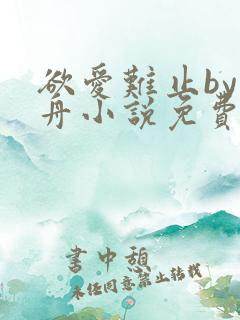 欲愛難止by
舟小說免費
書中憩
未经同意禁止转载